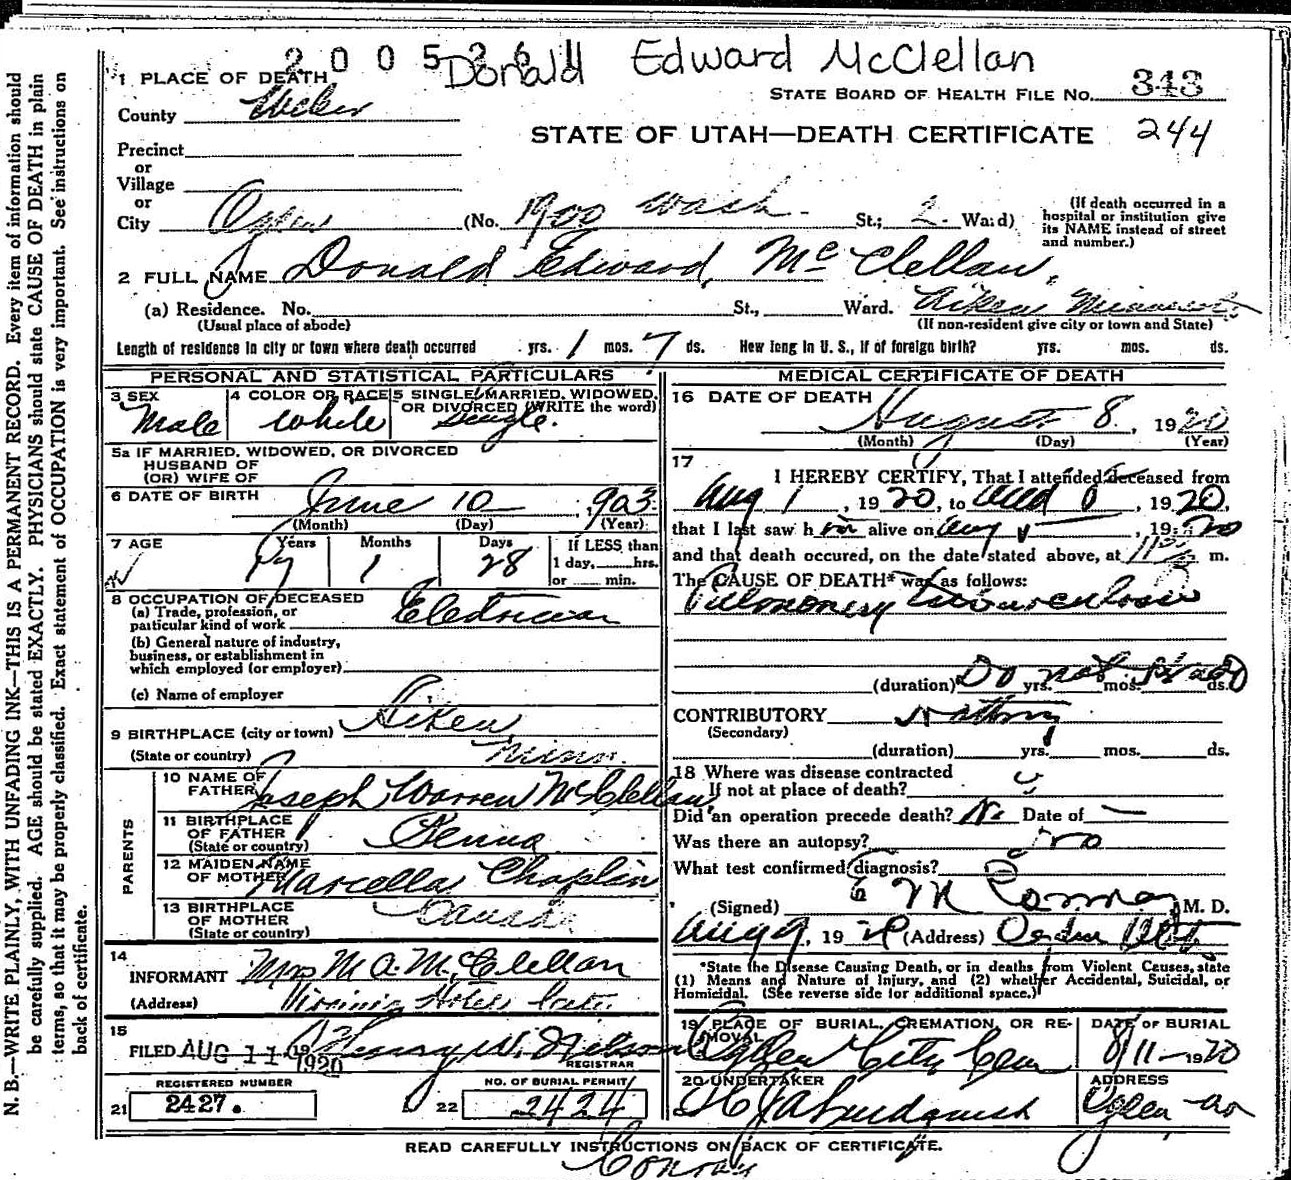 2005261
Donald Edward McClellan
1 PLACE OF DEATH
STATE BOARD OF HEALTH FILE NO. 343
County Weber
STATE OF UTAH—DEATH CERTIFICATE 244
Precinct
or
Village
or
City Ogden (No. 1900 Wash. St.; 2 Ward)
(If death occurred in a
hospital or institution give
its NAME instead of street
and number.)
2 FULL NAME Donald Edward McClellan.
(a) Residence. No. St., Ward. Aiken Minnesota.
(Usual place of abode) (If non-resident give city or town and State)
Length of residence in city or town where death occurred yrs. 1 mos. 7 ds. How long in U. S., if of foreign birth? yrs. mos. ds.
PERSONAL AND STATISTICAL PARTICULARS
3 SEX 4 COLOR OR RACE 5 SINGLE, MARRIED, WIDOWED,
OR DIVORCED (WRITE the word)
Male White Single.
5a IF MARRIED, WIDOWED, OR DIVORCED
HUSBAND OF
(OR) WIFE OF
6 DATE OF BIRTH June 10 1903
(Month) (Day) (Year)
7 AGE Years Months Days If LESS than
17 1 28 1 day, hrs.
or min.
8 OCCUPATION OF DECEASED
(a) Trade, profession, or
particular kind of work Electrician
(b) General nature of industry,
business, or establishment in
which employed (or employer)
(c) Name of employer
9 BIRTHPLACE (city or town) Aiken
(State or country) Minn.
PARENTS
10 NAME OF
FATHER Joseph Warren McClellan
11 BIRTHPLACE
OF FATHER
(State or country) Penna
12 MAIDEN NAME
OF MOTHER Marcella Chaplin
13 BIRTHPLACE
OF MOTHER
(State or country) Canada
14
INFORMANT Mrs M. A. McClellan
(Address) Virginia Hotel
15
FILED AUG 11 1920 Henry W. Nilson
REGISTRAR
REGISTERED NUMBER NO. OF BURIAL PERMIT
21 2427. 22 2424
MEDICAL CERTIFICATE OF DEATH
16 DATE OF DEATH
August 8, 1920
(Month) (Day) (Year)
17
I HEREBY CERTIFY, That I attended deceased from
Aug 1, 1920, to 1920.
that I last saw him alive on Aug 1920
and that death occured, on the date stated above, at m.
The CAUSE OF DEATH* was as follows:
Pulmonary Tuberculosis
(duration) Do not yrs. mos. ds.
CONTRIBUTORY Nothing
(Secondary)
(duration) yrs. mos. ds.
18 Where was disease contracted
If not at place of death?
Did an operation precede death? No Date of —
Was there an autopsy? no
What test confirmed diagnosis?
(Signed) E M Conroy M. D.
Aug 9, 1920 (Address) Ogden Utah
*State the Disease Causing Death, or in deaths from Violent Causes, state
(1) Means and Nature of Injury, and (2) whether Accidental, Suicidal, or
Homicidal. (See reverse side for additional space.)
19 PLACE OF BURIAL, CREMATION, OR RE-
MOVAL DATE OF BURIAL
Ogden City Cem 8/11-1920
20 UNDERTAKER ADDRESS
Ogden
READ CAREFULLY INSTRUCTIONS ON BACK OF CERTIFICATE.
Conroy
N. B.—WRITE PLAINLY, WITH UNFADING INK—THIS IS A PERMANENT RECORD. Every item of information should
be carefully supplied. AGE should be stated EXACTLY. PHYSICIANS should state CAUSE OF DEATH in plain
terms, so that it may be properly classified. Exact statement of OCCUPATION is very important. See instructions on
back of certificate.